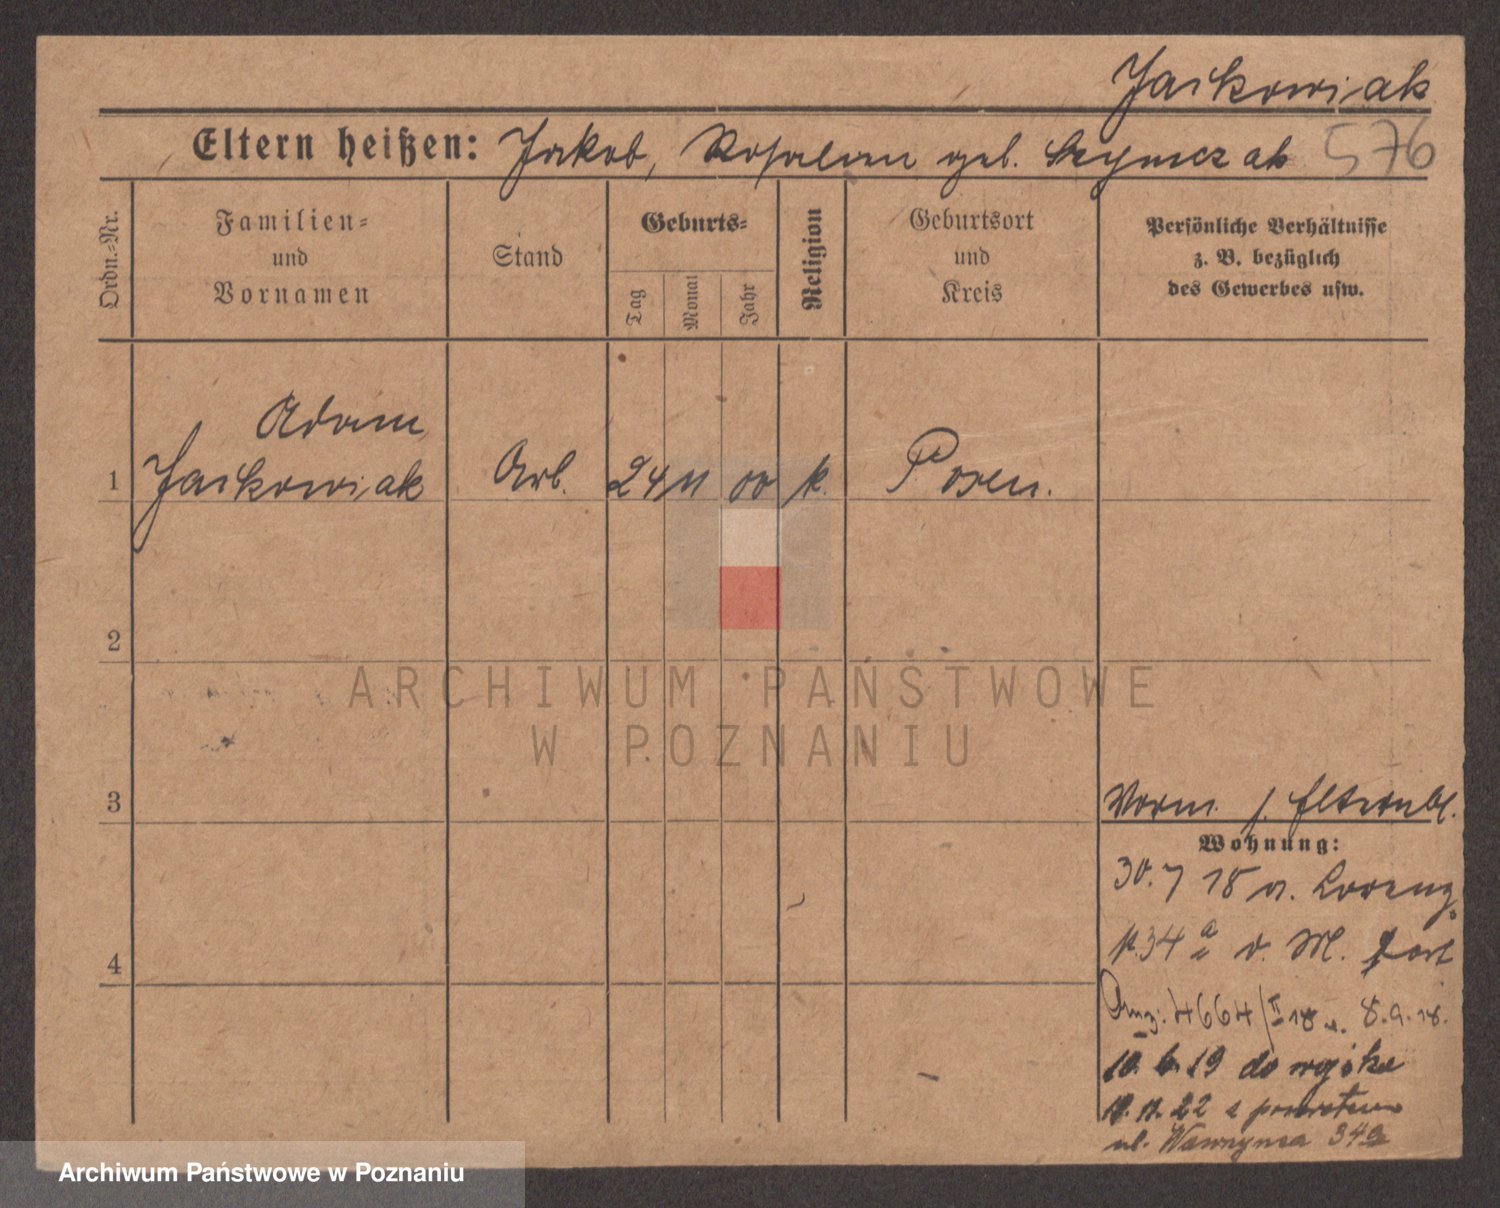 Jaskowiak
Eltern heißen: Jakob, Rosalien geb. Szymczak 576
Ordn.=Nr.
Familien=
und
Vornamen
Stand
Geburts=
Tag
Monat
Jahr
Religion
Geburtsort
und
Kreis
Persönliche Verhältnisse
z. B. bezüglich
des Gewerbes usw.
Adam
1 Jaskowiak Arb. 24 11 00 k. Posen.
2
3
Vorm. s. Elternbl.
Wohnung:
30. 7 18 n. Lorenz
34 a v. M. fort
4
Anz. 4664/II 18 v. 8.9.18.
10. 6. 19 do wojska
22 z powrotem
ul. Wawrzyńca 34a
ARCHIWUM PAŃSTWOWE
W POZNANIU
Archiwum Państwowe w Poznaniu